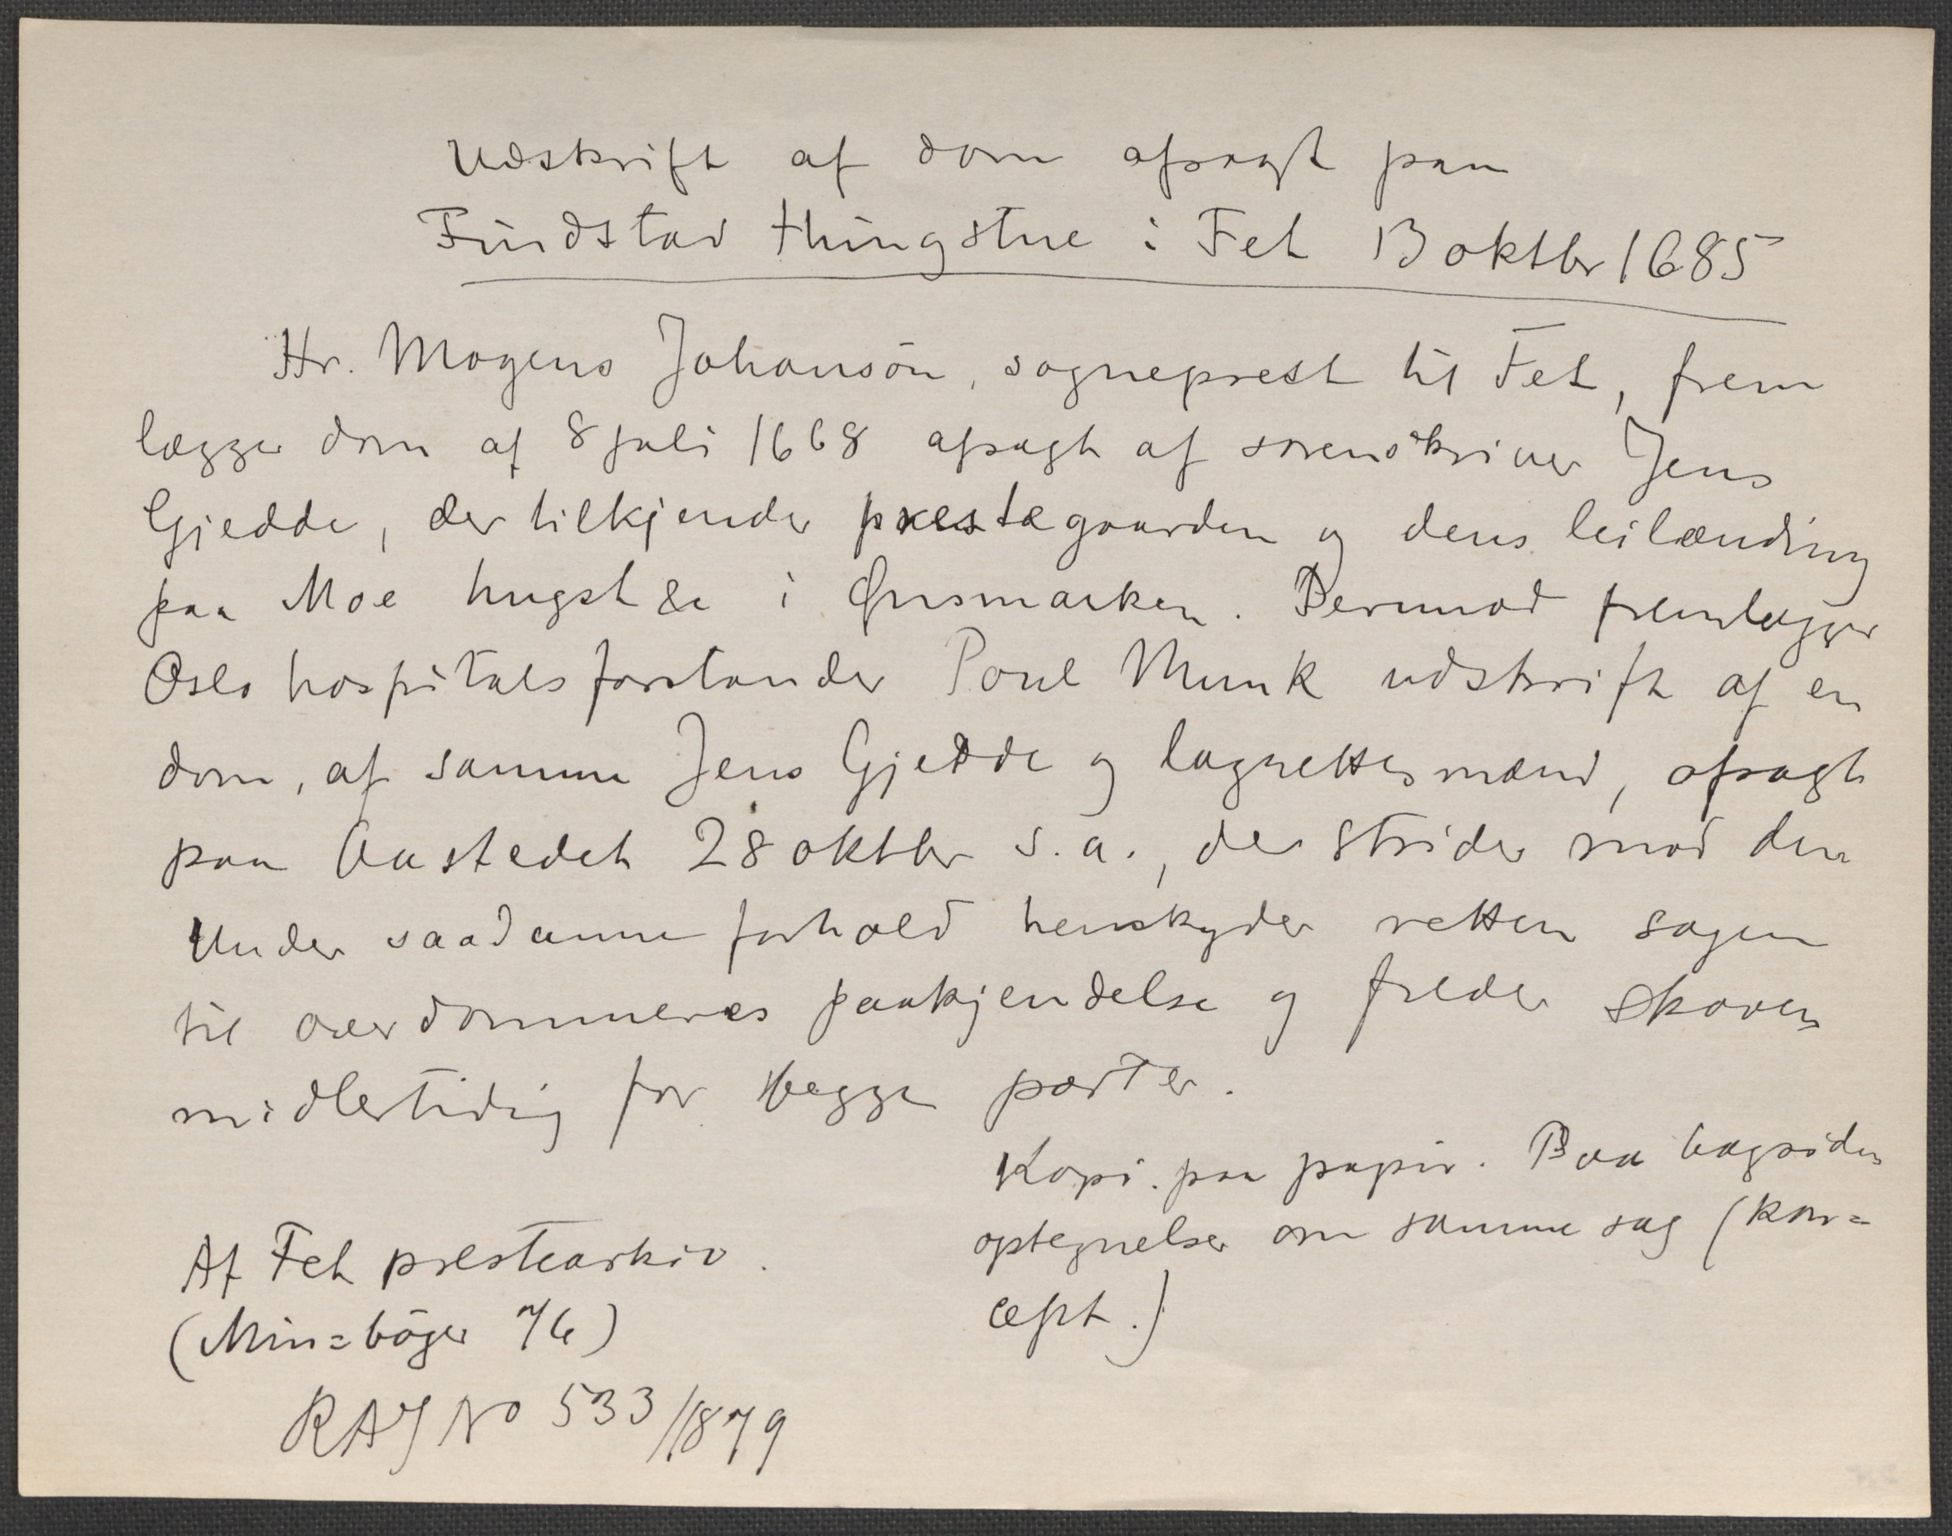 Udskrift af dom afsagt paa
Findstad thingstue i Fet 13 oktbr 1685
Hr. Mogens Johansön, sogneprest til Fet, frem
lægger dom af 8 juli 1668 afsagt af sorenskriver Jens
Gjedde, der tilkjender prestegaarden og dens leilænding
paa Moe hugst &c i Gusmarken. Derimod fremlægger
Oslo hospitals forstander Poul Munk udskrift af en
dom, af samme Jens Gjedde og lagrettesmænd, afsagt
paa aastedet 28 oktbr s. a., der strider mod den
Under saadanne forhold henskyder retten sagen
til overdommeres paakjendelse og freder skoven
midlertidig for begge parter.
Kopi paa papir. Paa bagsiden
optegnelser om samme sag (kon=
cept.)
Af Fet prestearkiv.
(Min=bøger 7/6)
RAJ No 533/1879